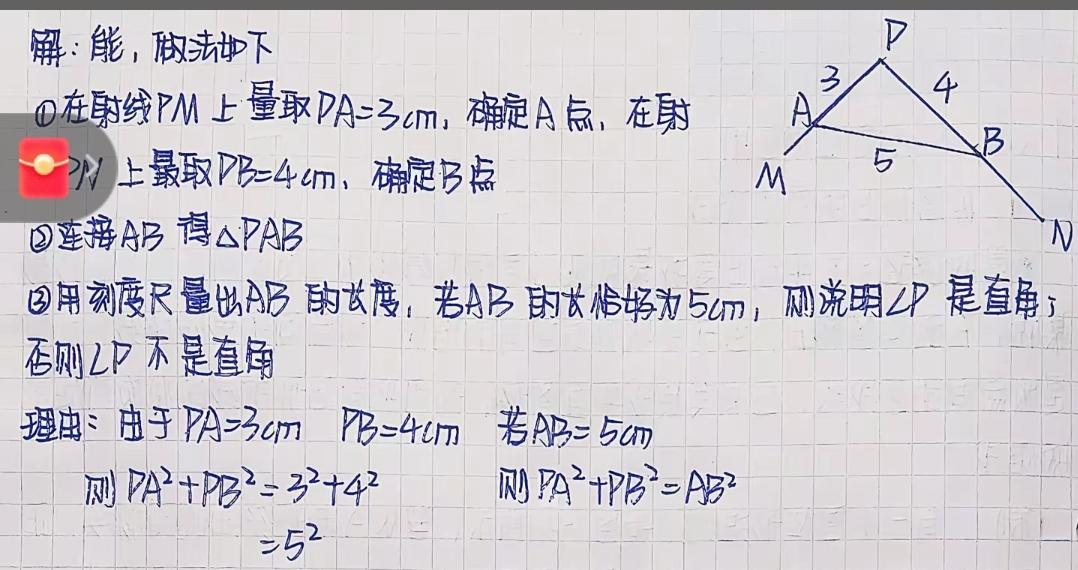 解：能，做法如下
①在射线PM上量取PA=3cm，确定A点，在射
PN上量取PB=4cm，确定B点
②连接AB 得△PAB
③用刻度尺量出AB的长度，若AB的长恰好为5cm，则说明∠P是直角；
否则∠P不是直角
理由：由于PA=3cm PB=4cm 若AB=5cm
则PA²+PB²=3²+4² 则PA²+PB²=AB²
=5²
P
3
4
A
B
5
M
N